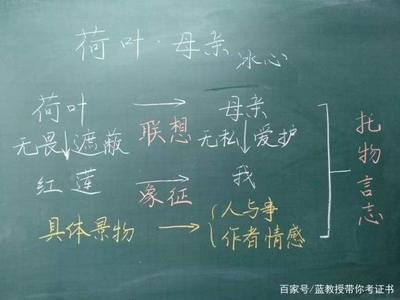 荷叶·母亲 冰心
荷叶 → 母亲
无畏 ↓ 遮蔽 联想 无私 ↓ 爱护
红莲 → 我
象征
具体景物 → { 人与事
作者情感
托物言志
百家号/蓝教授带你考证书